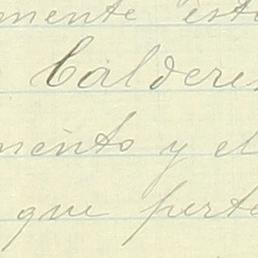 mente esto
Caldere
mento y el
que perte